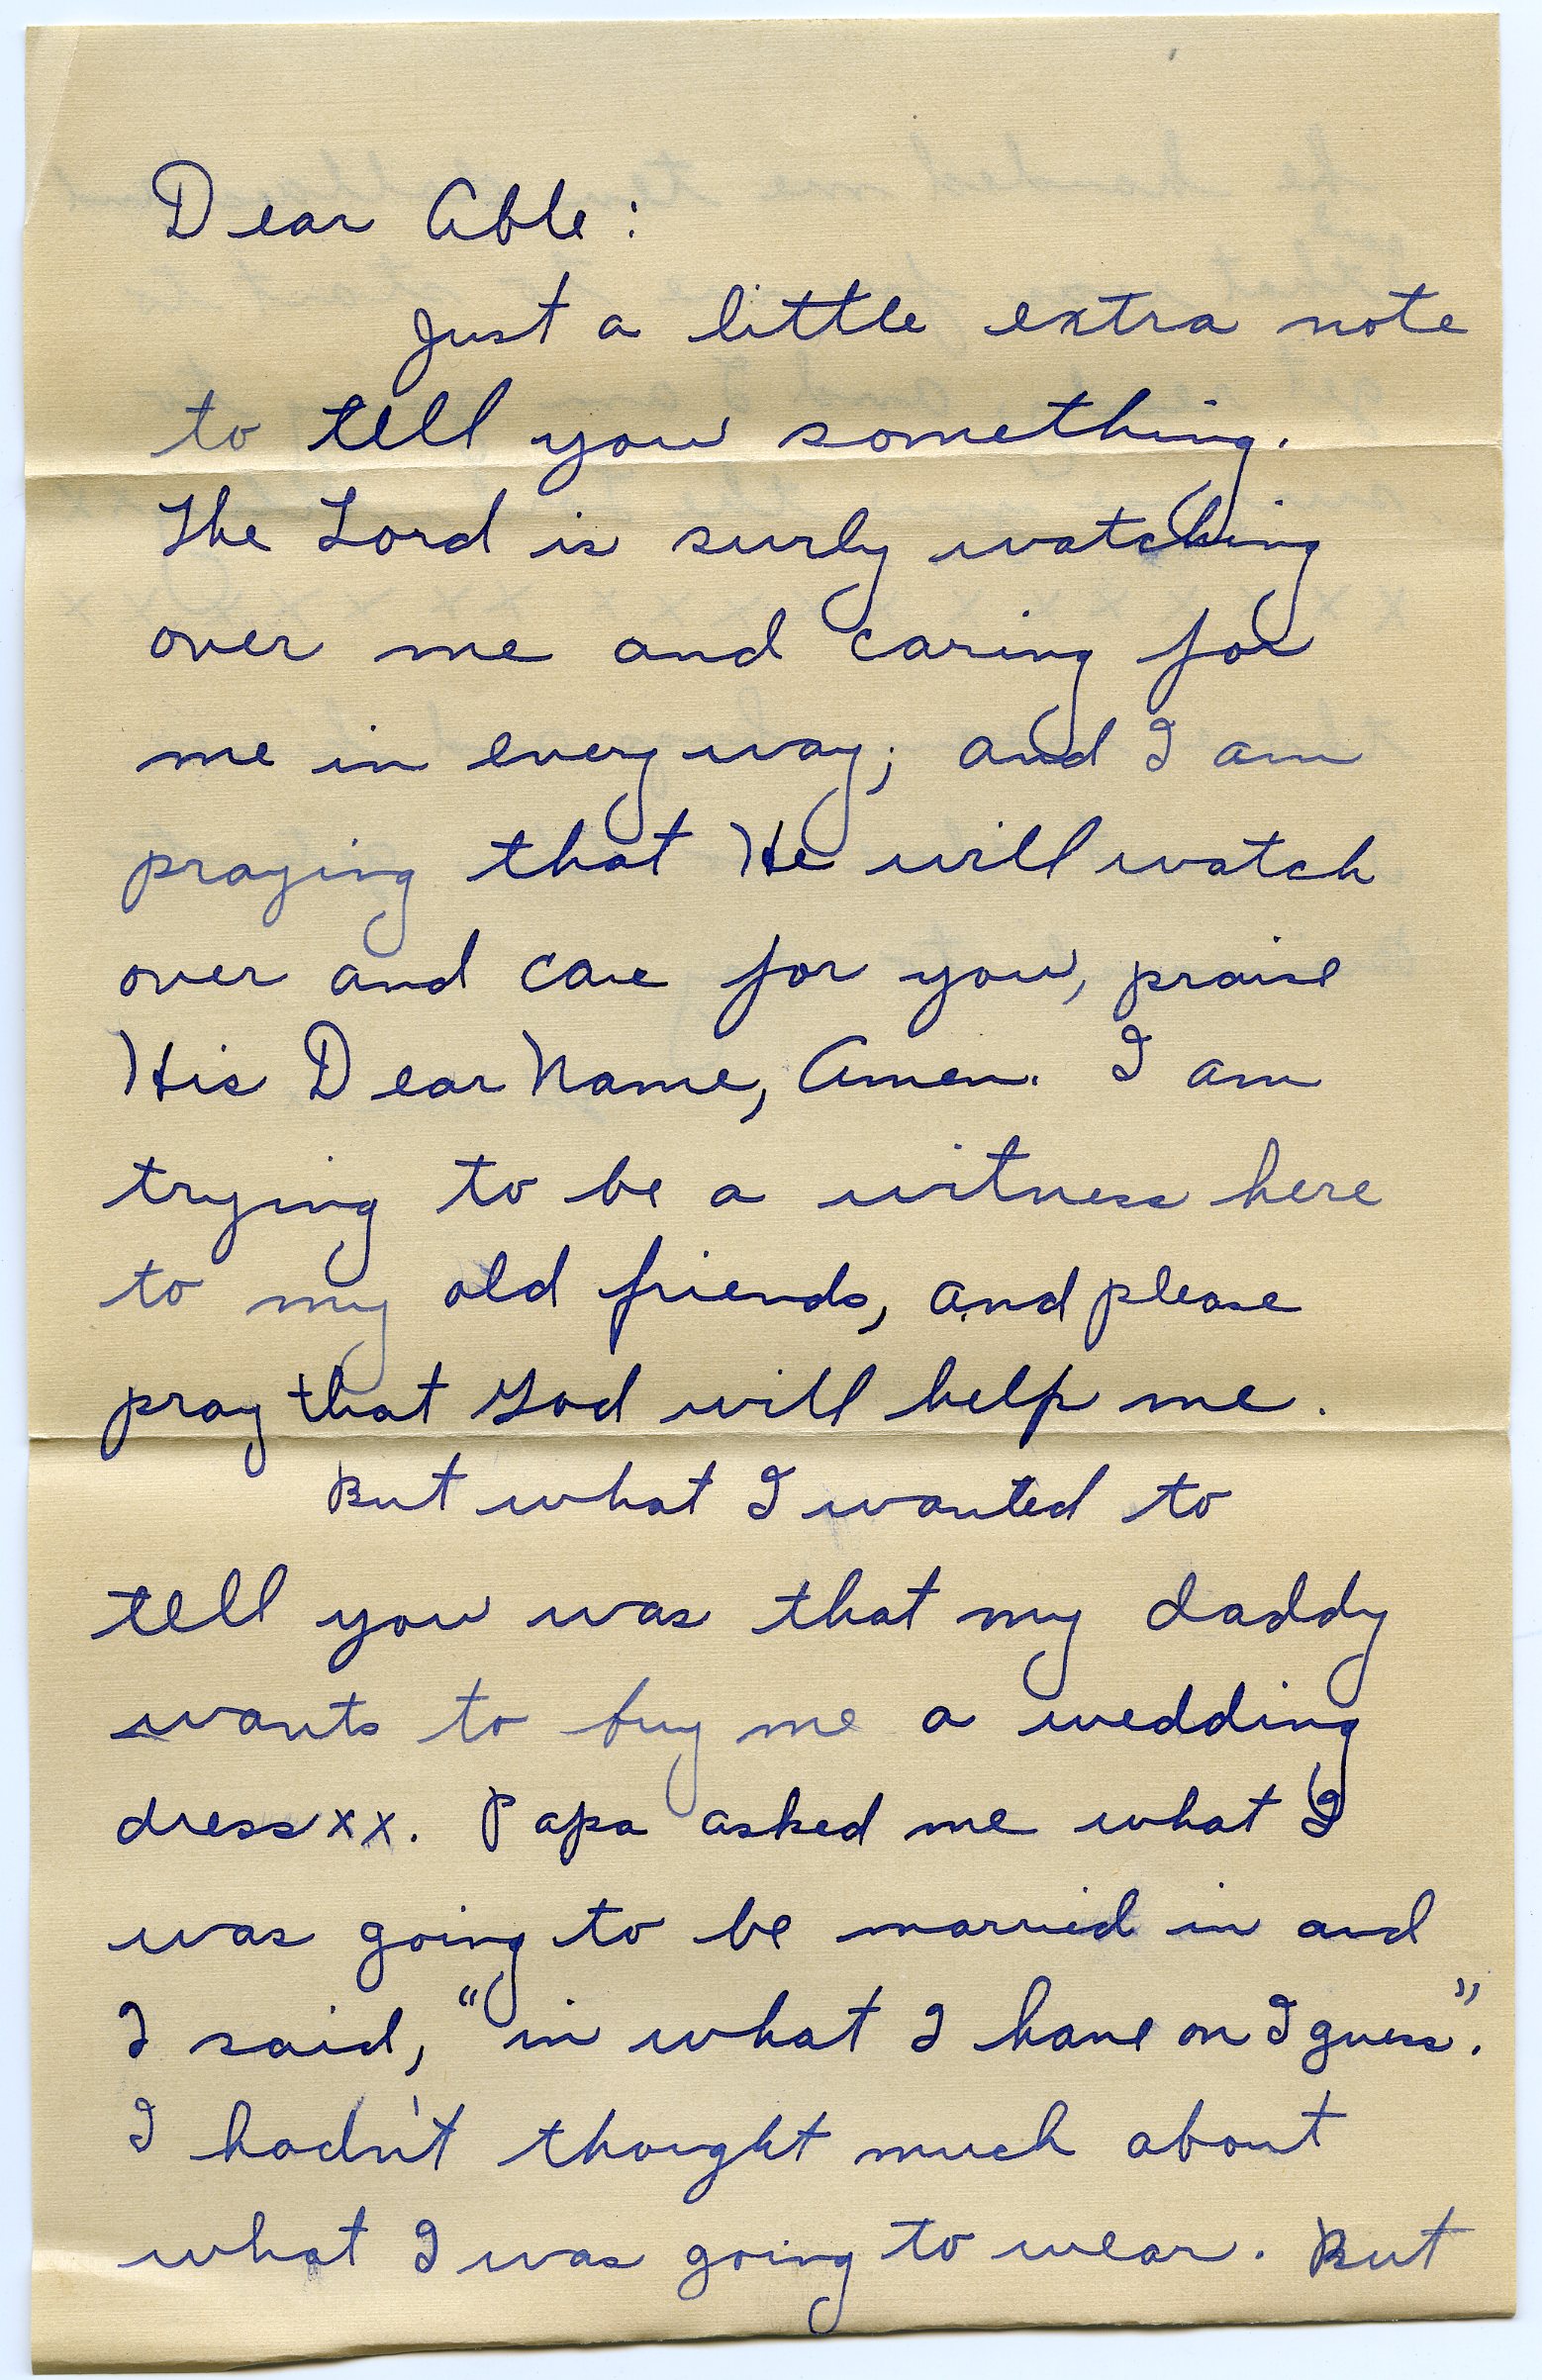 Dear Able:
Just a little extra note
to tell you something.
The Lord is surly watching
over me and caring for
me in every way; and I am
praying that He will watch
over and care for you, praise
His Dear Name, Amen. I am
trying to be a witness here
to my old friends, and please
pray that God will help me.
But what I wanted to
tell you was that my daddy
wants to buy me a wedding
dress xx. Papa asked me what I
was going to be married in and
I said, "in what I have on I guess".
I hadn't thought much about
what I was going to wear. But